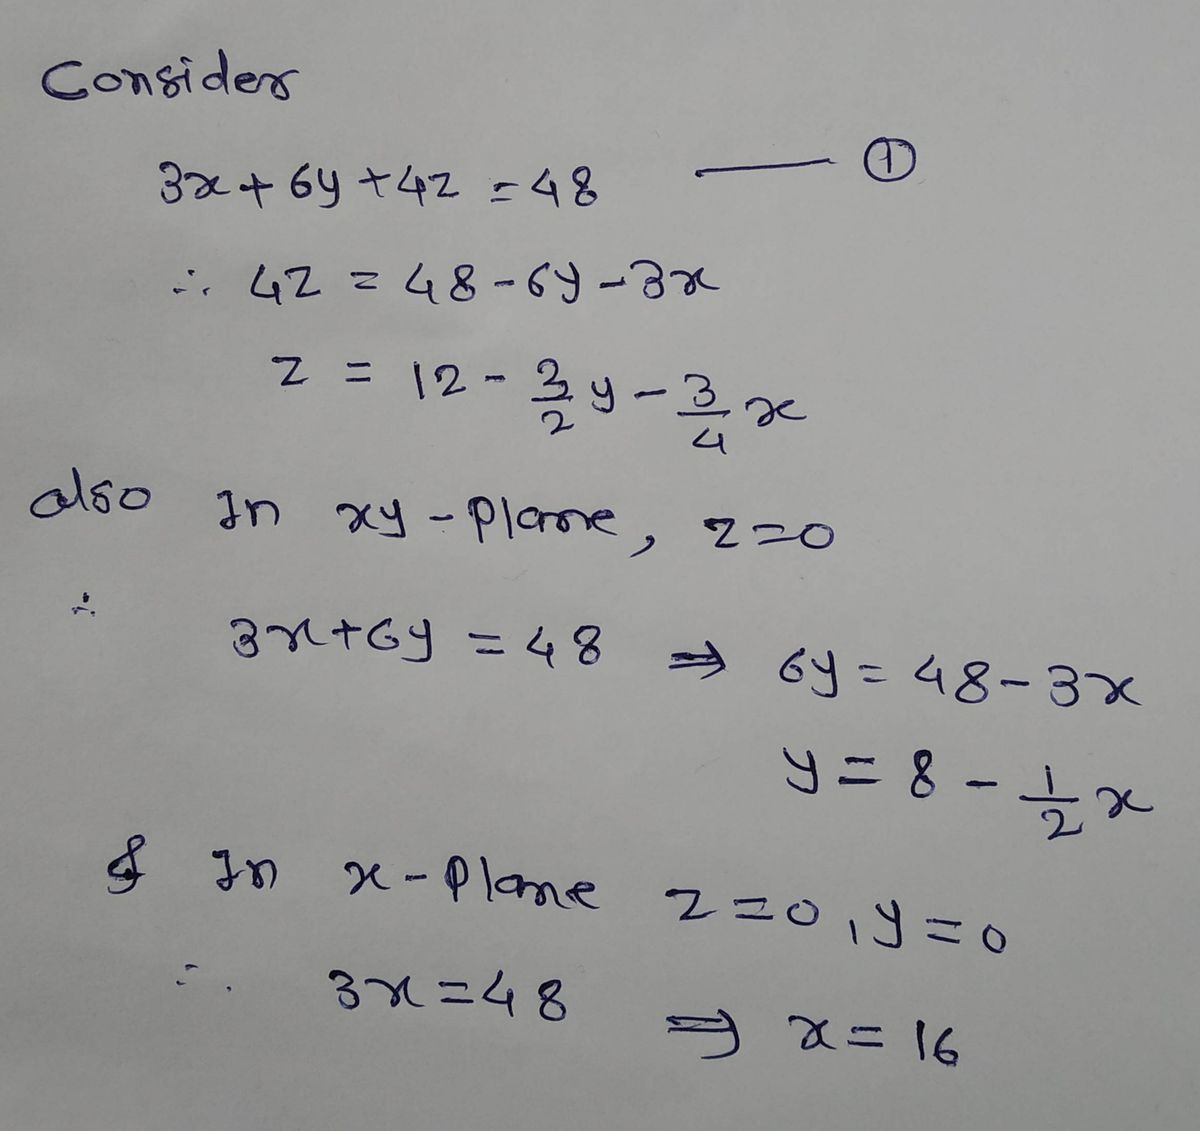 Consider
3x + 6y + 4z = 48 —— ①
∴ 4z = 48 - 6y - 3x
z = 12 - 3/2 y - 3/4 x
also In xy - Plane, z=0
∴ 3x+6y = 48 ⇒ 6y = 48 - 3x
y = 8 - 1/2 x
& In x - Plane z=0, y=0
∴ 3x = 48 ⇒ x = 16